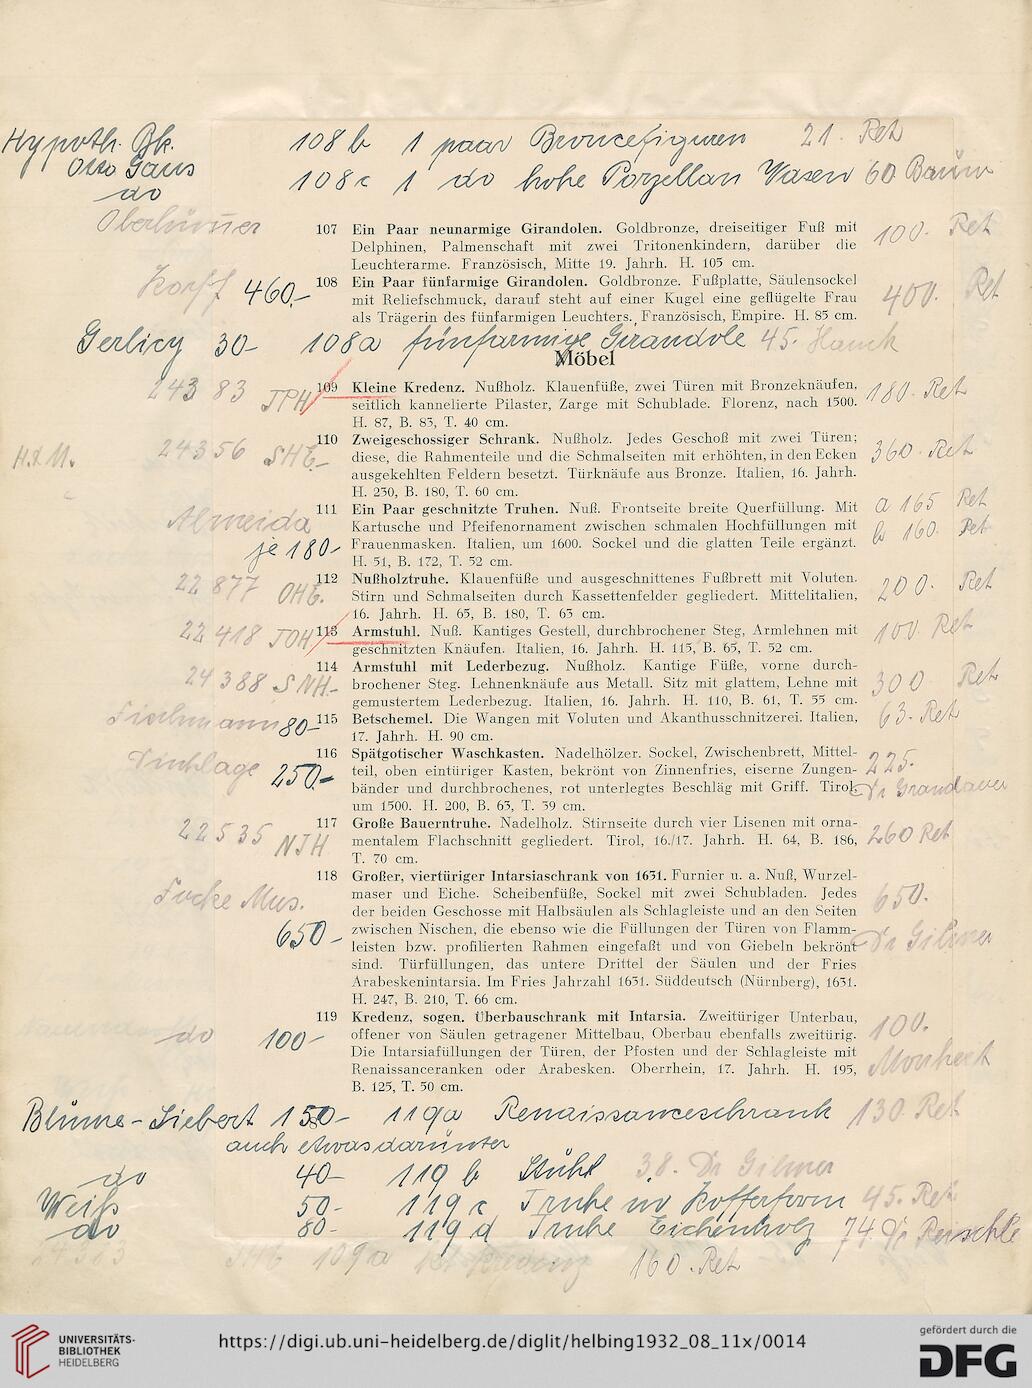 Hypoth. Bk. 108 b 1 paar Broncefiguren 21. Ret
Otto Gaus
do 108c 1 do hohe Porzellan Vasen 60
107 Ein Paar neunarmige Girandolen. Goldbronze, dreiseitiger Fuß mit 100. Ret
Delphinen, Palmenschaft mit zwei Tritonenkindern, darüber die
Leuchterarme. Französisch, Mitte 19. Jahrh. H. 105 cm.
Korff 460.- 108 Ein Paar fünfarmige Girandolen. Goldbronze. Fußplatte, Säulensockel 400. Ret
mit Reliefschmuck, darauf steht auf einer Kugel eine geflügelte Frau
als Trägerin des fünfarmigen Leuchters. Französisch, Empire. H. 85 cm.
30- 108a fünfarmige Girandole 45. Hauck
Möbel
243 83 JPH 109 Kleine Kredenz. Nußholz. Klauenfüße, zwei Türen mit Bronzeknäufen, 180. Ret
seitlich kannelierte Pilaster, Zarge mit Schublade. Florenz, nach 1500.
H. 87, B. 83, T. 40 cm.
H.&M. 24356 110 Zweigeschossiger Schrank. Nußholz. Jedes Geschoß mit zwei Türen; 360. Ret
diese, die Rahmenteile und die Schmalseiten mit erhöhten, in den Ecken
ausgekehlten Feldern besetzt. Türknäufe aus Bronze. Italien, 16. Jahrh.
H. 230, B. 180, T. 60 cm.
Almeida 111 Ein Paar geschnitzte Truhen. Nuß. Frontseite breite Querfüllung. Mit a 165 Ret
Kartusche und Pfeifenornament zwischen schmalen Hochfüllungen mit b 160. Ret
je 180- Frauenmasken. Italien, um 1600. Sockel und die glatten Teile ergänzt.
H. 51, B. 172, T. 52 cm.
22 877 OHE. 112 Nußholztruhe. Klauenfüße und ausgeschnittenes Fußbrett mit Voluten. 200. Ret
Stirn und Schmalseiten durch Kassettenfelder gegliedert. Mittelitalien,
16. Jahrh. H. 65, B. 180, T. 63 cm.
22 418 JOH 113 Armstuhl. Nuß. Kantiges Gestell, durchbrochener Steg, Armlehnen mit 100 Ret
geschnitzten Knäufen. Italien, 16. Jahrh. H. 115, B. 65, T. 52 cm.
24 388 SNH- 114 Armstuhl mit Lederbezug. Nußholz. Kantige Füße, vorne durch- 300 Ret
brochener Steg. Lehnenknäufe aus Metall. Sitz mit glattem, Lehne mit
gemustertem Lederbezug. Italien, 16. Jahrh. H. 110, B. 61, T. 55 cm.
80- 115 Betschemel. Die Wangen mit Voluten und Akanthusschnitzerei. Italien, 63. Ret
17. Jahrh. H. 90 cm.
Vinhlage 250.- 116 Spätgotischer Waschkasten. Nadelhölzer. Sockel, Zwischenbrett, Mittel- 225.
teil, oben eintüriger Kasten, bekrönt von Zinnenfries, eiserne Zungen-
bänder und durchbrochenes, rot unterlegtes Beschläg mit Griff. Tirol, Dr Grandauer
um 1500. H. 200, B. 63, T. 39 cm.
22535 NJH 117 Große Bauerntruhe. Nadelholz. Stirnseite durch vier Lisenen mit orna- 260 Ret
mentalem Flachschnitt gegliedert. Tirol, 16./17. Jahrh. H. 64, B. 186,
T. 70 cm.
Focke Mus. 118 Großer, viertüriger Intarsiaschrank von 1631. Furnier u. a. Nuß, Wurzel-
maser und Eiche. Scheibenfüße, Sockel mit zwei Schubladen. Jedes 650.
der beiden Geschosse mit Halbsäulen als Schlagleiste und an den Seiten
650- zwischen Nischen, die ebenso wie die Füllungen der Türen von Flamm-
leisten bzw. profilierten Rahmen eingefaßt und von Giebeln bekrönt Dr Gilmer
sind. Türfüllungen, das untere Drittel der Säulen und der Fries
Arabeskenintarsia. Im Fries Jahrzahl 1631. Süddeutsch (Nürnberg), 1631.
H. 247, B. 210, T. 66 cm.
do 100- 119 Kredenz, sogen. Überbauschrank mit Intarsia. Zweitüriger Unterbau, 100.
offener von Säulen getragener Mittelbau, Oberbau ebenfalls zweitürig.
Die Intarsiafüllungen der Türen, der Pfosten und der Schlagleiste mit
Renaissanceranken oder Arabesken. Oberrhein, 17. Jahrh. H. 195,
B. 125, T. 50 cm.
Blume-Siebert 150- 119a Renaissanceschrank 130 Ret
auch etwas darunter
do 40- 119 b Stuhl 38. Dr Gilmer
Weiß 50- 119 c Truhe in Kofferform 45. Ret
do 80- 119 d Truhe Eichenholz 74. Dr
109a kl. Kredenz 160. Ret
UNIVERSITÄTS-
BIBLIOTHEK
HEIDELBERG
https://digi.ub.uni-heidelberg.de/diglit/helbing1932_08_11x/0014
gefördert durch die
DFG